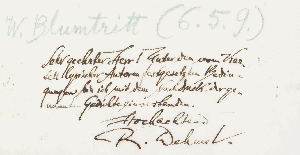 W. Blumtritt (6.5.9.)
Sehr geehrter Herr! Unter den vom Kar-
tell lyrischer Autoren festgesetzten Bedin-
gungen bin ich mit dem Nachdruck der ge-
nannten Gedichte einverstanden.
Hochachtend
R. Dehmel.